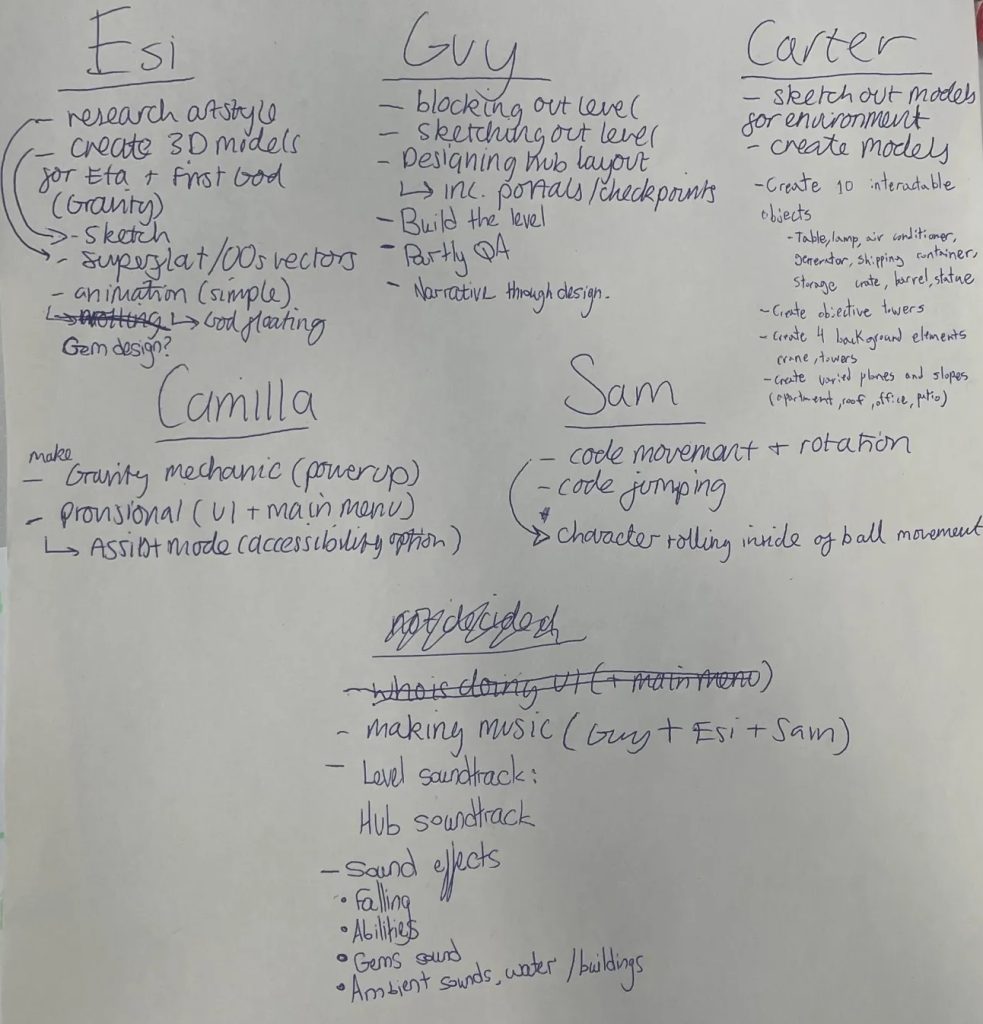 Esi
- research artstyle
- create 3D models
for Eta + First God
(Gravity)
→ - sketch
- superflat/00s vectors
- animation (simple)
↳ God floating
Gem design?
Guy
- blocking out level
- sketching out level
- Designing hub layout
↳ inc. portals/checkpoints
- Build the level
- Partly QA
- Narrative through design.
Carter
- sketch out models
for environment
- create models
- Create 10 interactable
objects
- Table, lamp, air conditioner,
generator, shipping container,
storage crate, barrel, statue
- Create objective towers
- Create 4 background elements
crane, towers
- Create varied planes and slopes
(apartment, roof, office, patio)
Camilla
make
- Gravity mechanic (powerup)
- provisional (UI + main menu)
↳ Assist mode (accessibility option)
Sam
- code movement + rotation
- code jumping
* character rolling inside of ball movement
not decided
- who is doing UI (+ main menu)
- making music (Guy + Esi + Sam)
- Level soundtrack:
Hub soundtrack
- Sound effects
• Falling
• Abilities
• Gems sound
• Ambient sounds, water / buildings